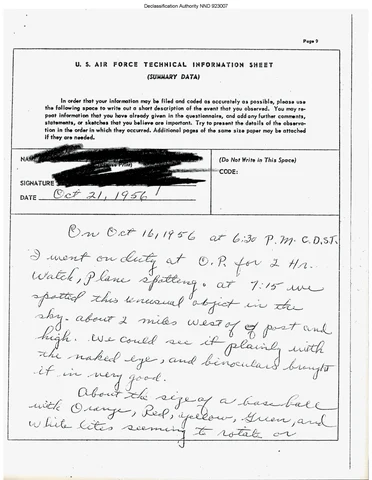 Declassification Authority NND 923007
Page 9
U. S. AIR FORCE TECHNICAL INFORMATION SHEET
(SUMMARY DATA)
In order that your information may be filed and coded as accurately as possible, please use
the following space to write out a short description of the event that you observed. You may re-
peat information that you have already given in the questionnaire, and add any further comments,
statements, or sketches that you believe are important. Try to present the details of the observa-
tion in the order in which they occurred. Additional pages of the same size paper may be attached
if they are needed.
(Do Not Write in This Space)
CODE:
SIGNATURE
DATE Oct 21, 1956
On Oct 16, 1956 at 6:30 P.M. C.D.S.T.
I went on duty at O.P. for 2 Hr.
Watch, Plane spotting. at 7:15 we
spotted this unusual object in the
sky. about 2 miles west of post and
high. We could see it plainly with
the naked eye, and binoculars brought
it in very good.
About the size of a base ball
with Orange, Red, yellow, Green, and
white lites seeming to rotate or